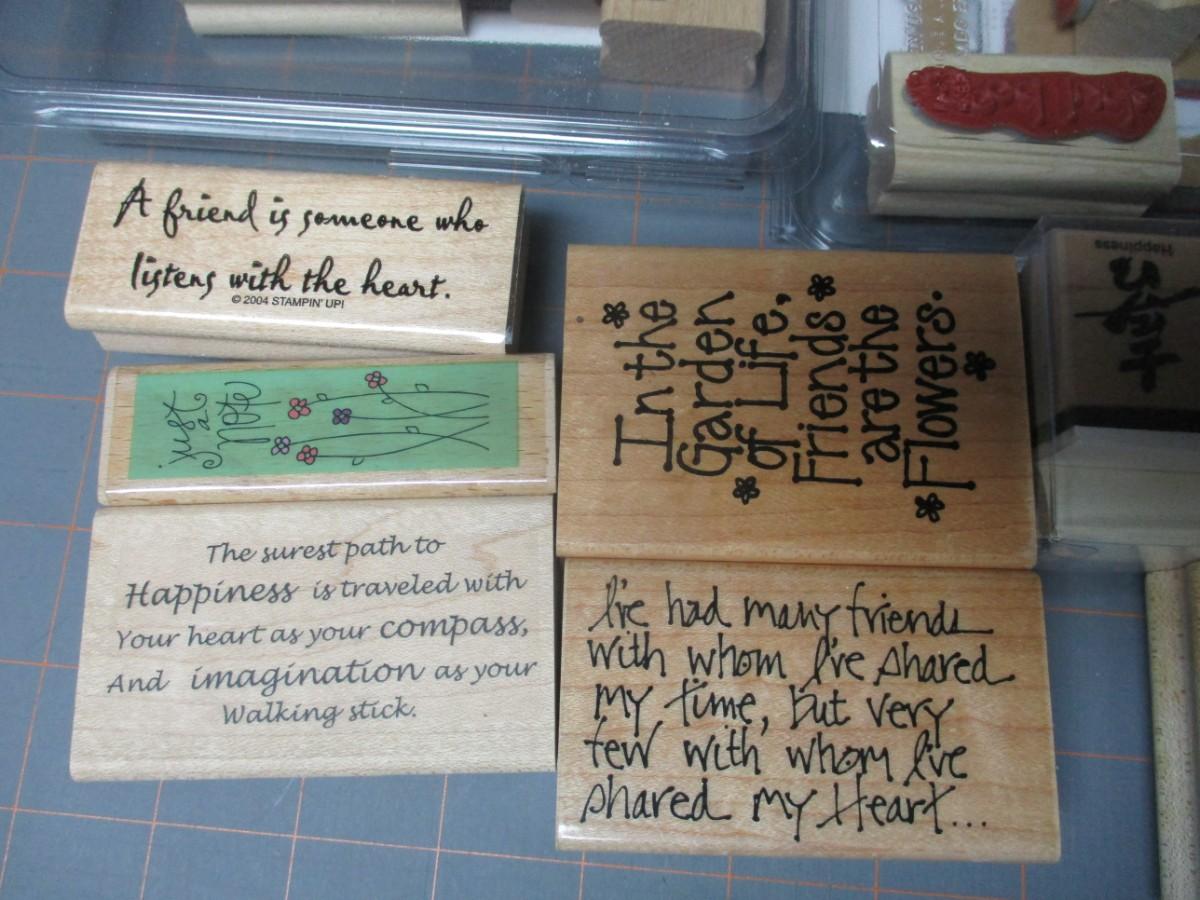 A friend is someone who
listens with the heart.
© 2004 STAMPIN' UP!
just
a
note
The surest path to
Happiness is traveled with
Your heart as your compass,
And imagination as your
Walking stick.
In the
Garden
of Life,
Friends
are the
Flowers.
I've had many friends
with whom I've shared
my time, but very
few with whom I've
shared my Heart...
Happiness